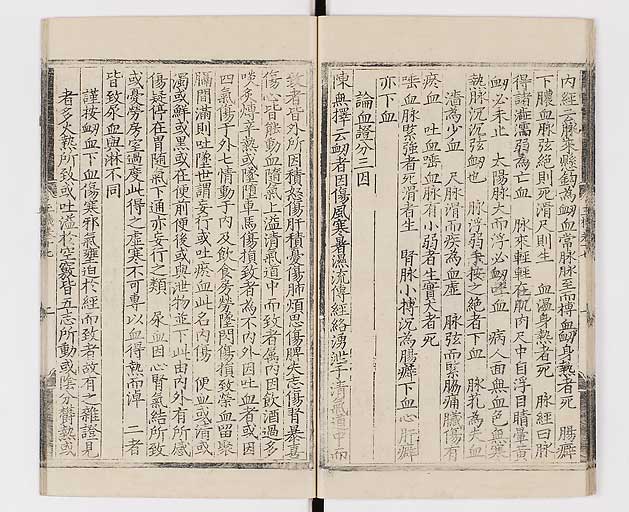 內經云脉來懸鉤為衄血嘗脉脉至而搏血衄身熱者死 腸癖
下膿血脉弦絕則死滑尺則生 血溫身熱者死 脉經曰脉
得諸濇濡弱為亡血 脉來輕輕在肌肉尺中自浮目睛暈黃
衄必未止 太陽脉大而浮必衄 血 病人面無血色無寒
熱脉沉弦衄也 脉浮弱手按之絕者下血 脉芤為失血
濇為少血 尺脉滑而疾為血虛 脉弦而緊脇痛臟傷有
瘀血 吐血唾血脉有小弱者生實大者死
唾血脉緊強者死滑者生 腎脉小搏沉為腸癖下血心肝癖
亦下血
論血證分三因
陳無擇云衄者因傷風寒暑濕流傳經絡湧泄于清氣道中而
致者皆外所因積怒傷肝積憂傷肺煩思傷脾失志傷腎暴喜
傷心皆能動血隨氣上溢清氣道中而致者屬內因飲酒過多
啖炙煿辛熱或墜墮車馬傷損致者為不內外因吐血者或因
四氣傷于外七情動于內及飲食房勞墜閃傷損致榮血留聚
膈間滿則吐隘世謂妄行或吐瘀血此名內傷 便血或清或
濁或鮮或黑或在便前便後或與泄物並下此由內外有所感
傷凝停在胃隨氣下通亦妄行之類 尿血因心腎氣結所致
或憂勞房室過度此得之虛寒不可專以血得熱而淖 二者
皆致尿血與淋不同
謹按衄血下血傷寒邪氣壅迫於經而致者故有之雜證見
者多火熱所致或吐溢於空竅皆五志所動或陰分欝熱或